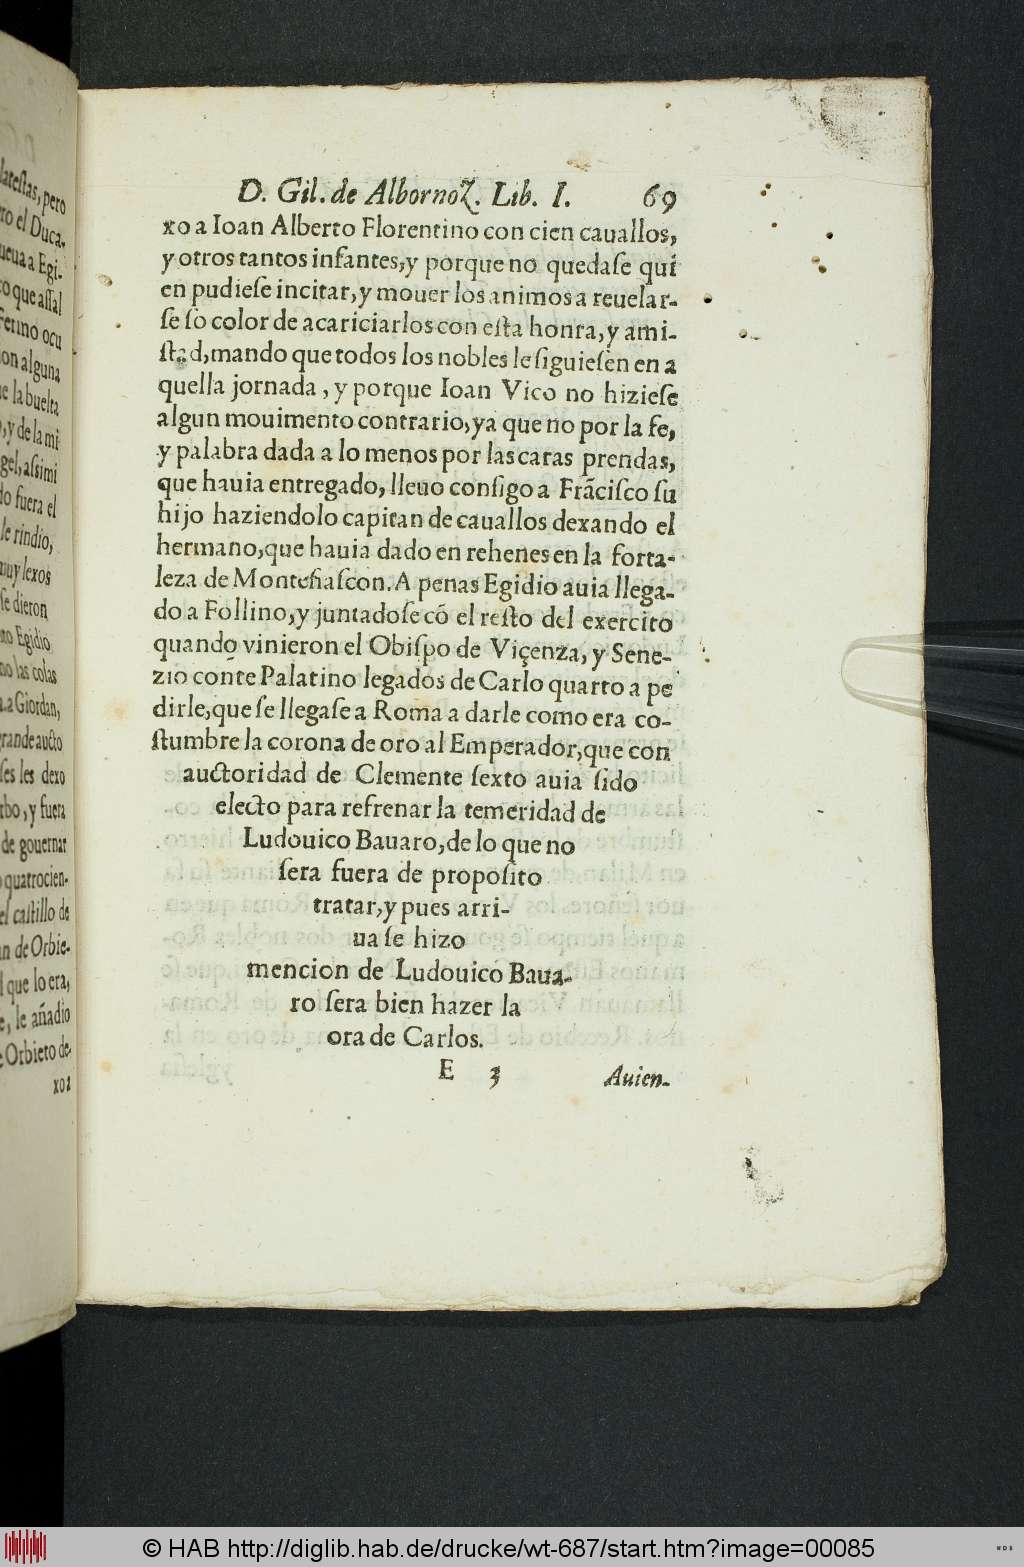 latestas, pero
ro el Duca-
ueua a Egi-
co que assal
Fermo ocu
on alguna
e la buelta
, y de la mi
gel, assimi
do fuera el
le rindio,
muy lexos
se dieron
ro Egidio
no las colas
a a Giordan,
grande aucto
ses les dexo
rbo, y fuera
de gouernar
o quatrocien-
el castillo de
an de Orbie-
l que lo era,
e, le añadio
e Orbieto de-
xo a
D. Gil. de Albornoz. Lib. I. 69
xo a Ioan Alberto Florentino con cien cauallos,
y otros tantos infantes, y porque no quedaſe qui
en pudieſe incitar, y mouer los animos a reuelar-
ſe ſo color de acariciarlos con eſta honra, y ami-
ſtad, mando que todos los nobles le ſiguieſen en a
quella jornada, y porque Ioan Vico no hizieſe
algun mouimento contrario, ya que no por la fe,
y palabra dada a lo menos por las caras prendas,
que hauia entregado, lleuo conſigo a Frãciſco ſu
hijo haziendolo capitan de cauallos dexando el
hermano, que hauia dado en rehenes en la forta-
leza de Montefiaſcon. A penas Egidio auia llega-
do a Follino, y juntadoſe cõ el reſto del exercito
quando vinieron el Obiſpo de Viçenza, y Sene-
zio conte Palatino legados de Carlo quarto a pe
dirle, que ſe llegaſe a Roma a darle como era co-
ſtumbre la corona de oro al Emperador, que con
auctoridad de Clemente ſexto auia ſido
electo para refrenar la temeridad de
Ludouico Bauaro, de lo que no
ſera fuera de propoſito
tratar, y pues arri-
ua ſe hizo
mencion de Ludouico Baua-
ro ſera bien hazer la
ora de Carlos.
E 3 Auien-
© HAB http://diglib.hab.de/drucke/wt-687/start.htm?image=00085